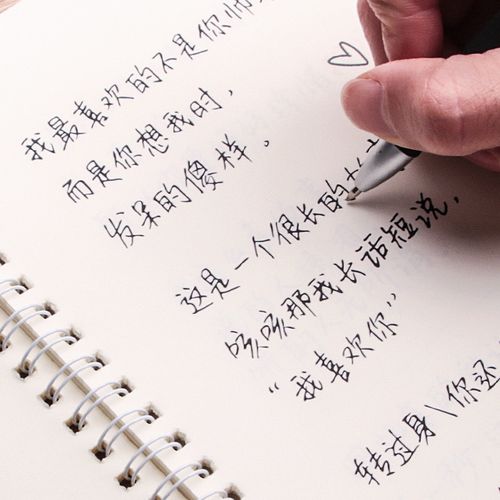 我最喜欢的不是你帅
而是你想我时，
发呆的傻样。
这是一个很长的
咳咳那我长话短说，
“我喜欢你”
转过身\你还